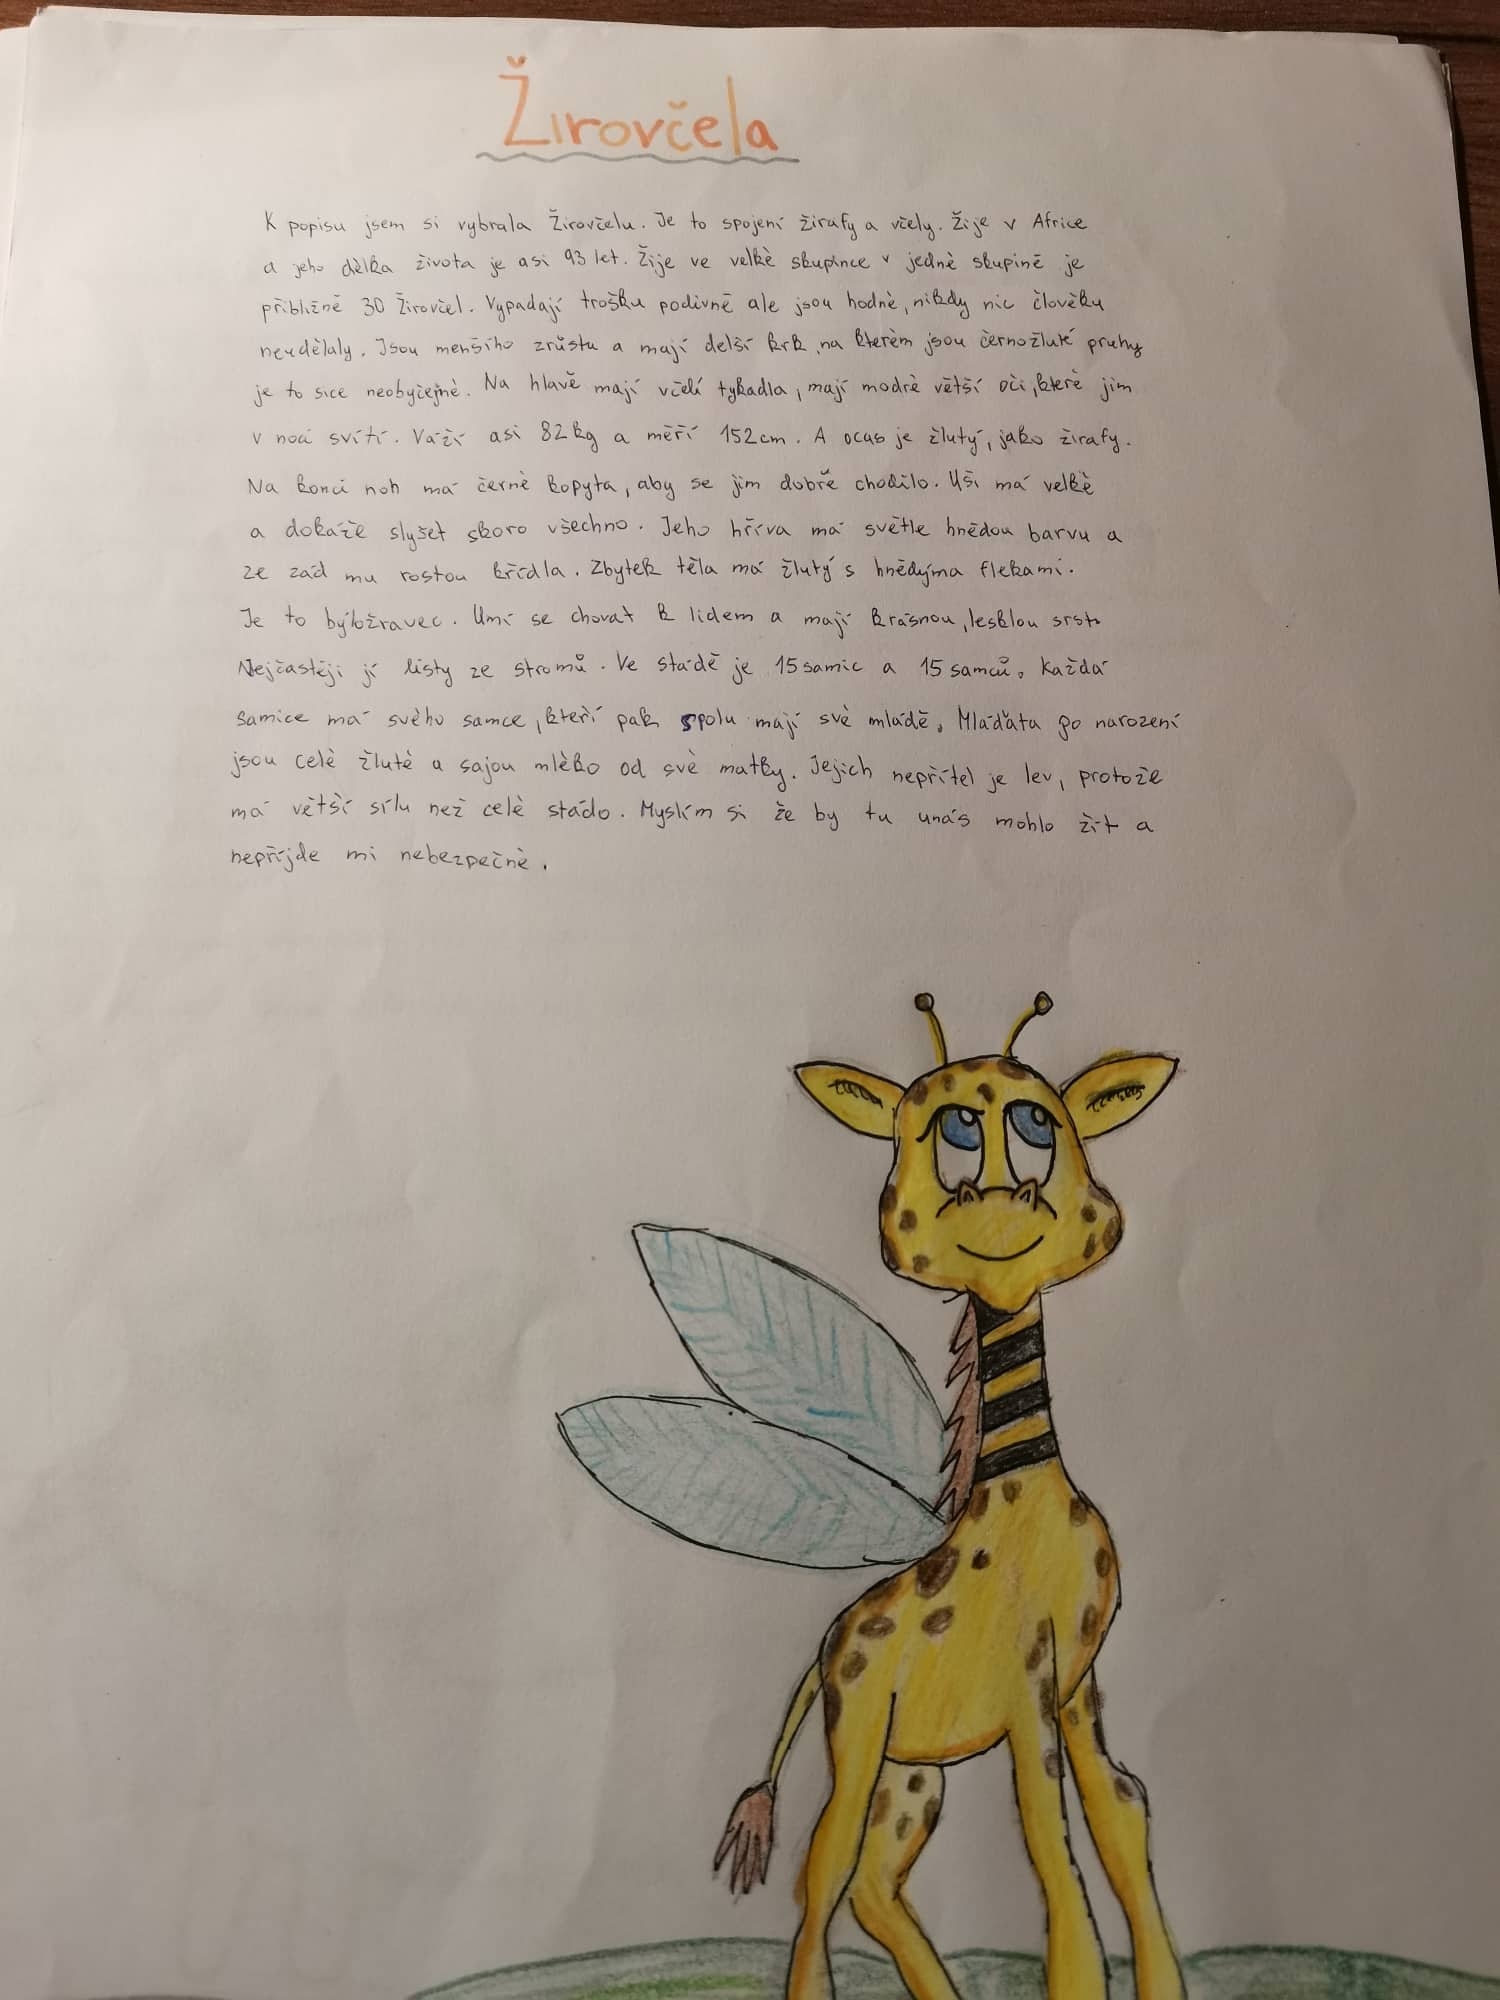 Žirovčela
K popisu jsem si vybrala Žirovčelu. Je to spojení žirafy a včely. Žije v Africe
a jeho délka života je asi 93 let. Žije ve velké skupince v jedné skupině je
přibližně 30 Žirovčel. Vypadají trošku podivně ale jsou hodné, nikdy nic člověku
neudělaly. Jsou menšího zrůstu a mají delší krk, na kterém jsou černožluté pruhy
je to sice neobyčejné. Na hlavě mají včelí tykadla, mají modré větší oči, které jim
v noci svítí. Váží asi 82kg a měří 152cm. A ocas je žlutý, jako žirafy.
Na konci noh má černé kopyta, aby se jim dobře chodilo. Uši má velké
a dokáže slyšet skoro všechno. Jeho hříva má světle hnědou barvu a
ze zád mu rostou křídla. Zbytek těla má žlutý s hnědýma flekami.
Je to býložravec. Umí se chovat k lidem a mají krásnou, lesklou srst.
Nejčastěji jí listy ze stromů. Ve stádě je 15 samic a 15 samců. Každá
samice má svého samce, kteří pak spolu mají své mládě. Mláďata po narození
jsou celé žluté a sajou mléko od své matky. Jejich nepřítel je lev, protože
má větší sílu než celé stádo. Myslím si že by tu unás mohlo žít a
nepřijde mi nebezpečné.